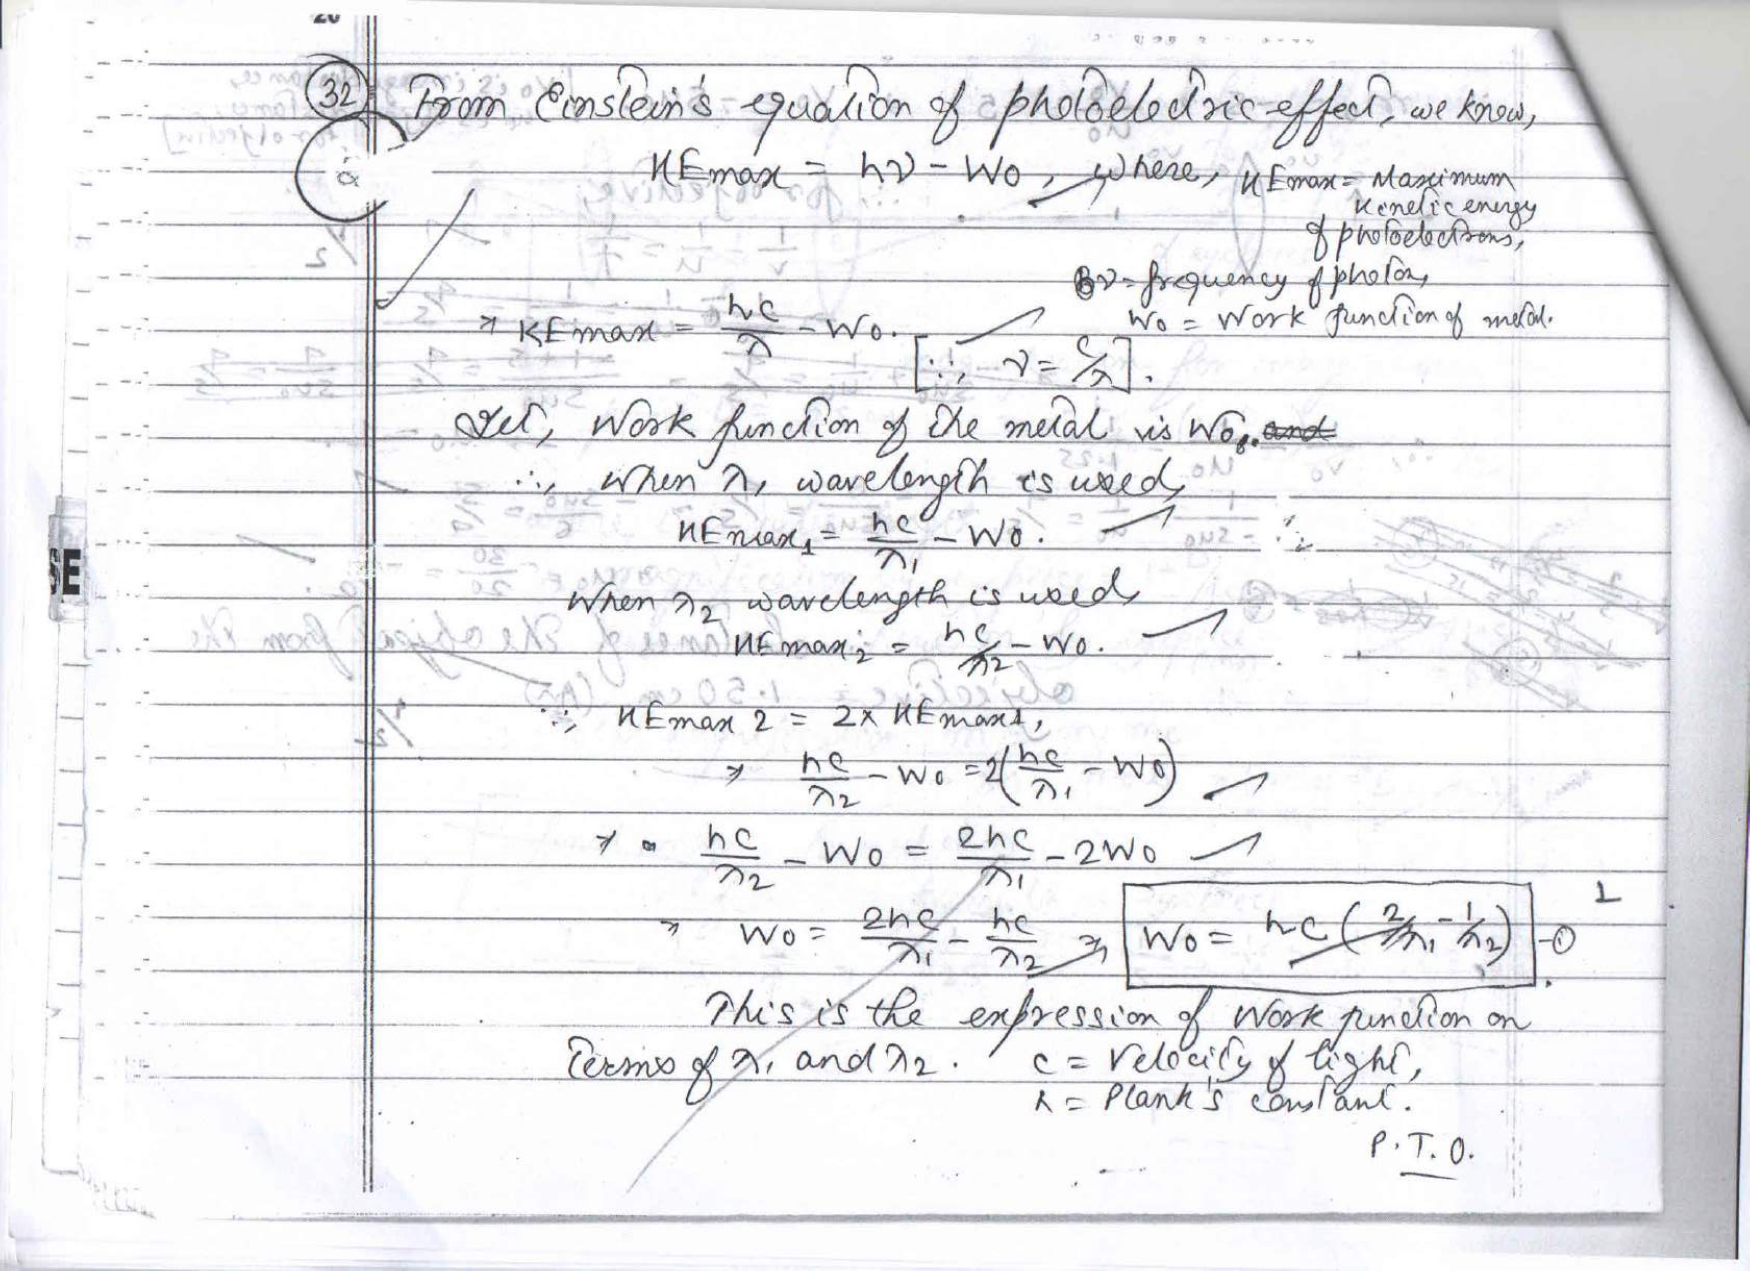 20
32 From Einstein's equation of photoelectric effect, we know,
a
KEmax = hν - W0, where, KEmax = Maximum
kinetic energy
of photoelectrons,
ν = frequency of photon,
⇒ KEmax = hc/λ - W0. W0 = Work function of metal.
[∵, ν = c/λ].
Let, Work function of the metal is W0. and
∴, when λ1 wavelength is used,
KEmax1 = hc/λ1 - W0. ½
When λ2 wavelength is used,
KEmax2 = hc/λ2 - W0.
∵, KEmax 2 = 2x KEmax1,
⇒ hc/λ2 - W0 = 2(hc/λ1 - W0)
⇒ hc/λ2 - W0 = 2hc/λ1 - 2W0
⇒ W0 = 2hc/λ1 - hc/λ2 ⇒ W0 = hc (2/λ1 - 1/λ2) -① 1
This is the expression of Work function on
Terms of λ1 and λ2. c = Velocity of light,
h = Plank's constant.
P.T.O.
SE